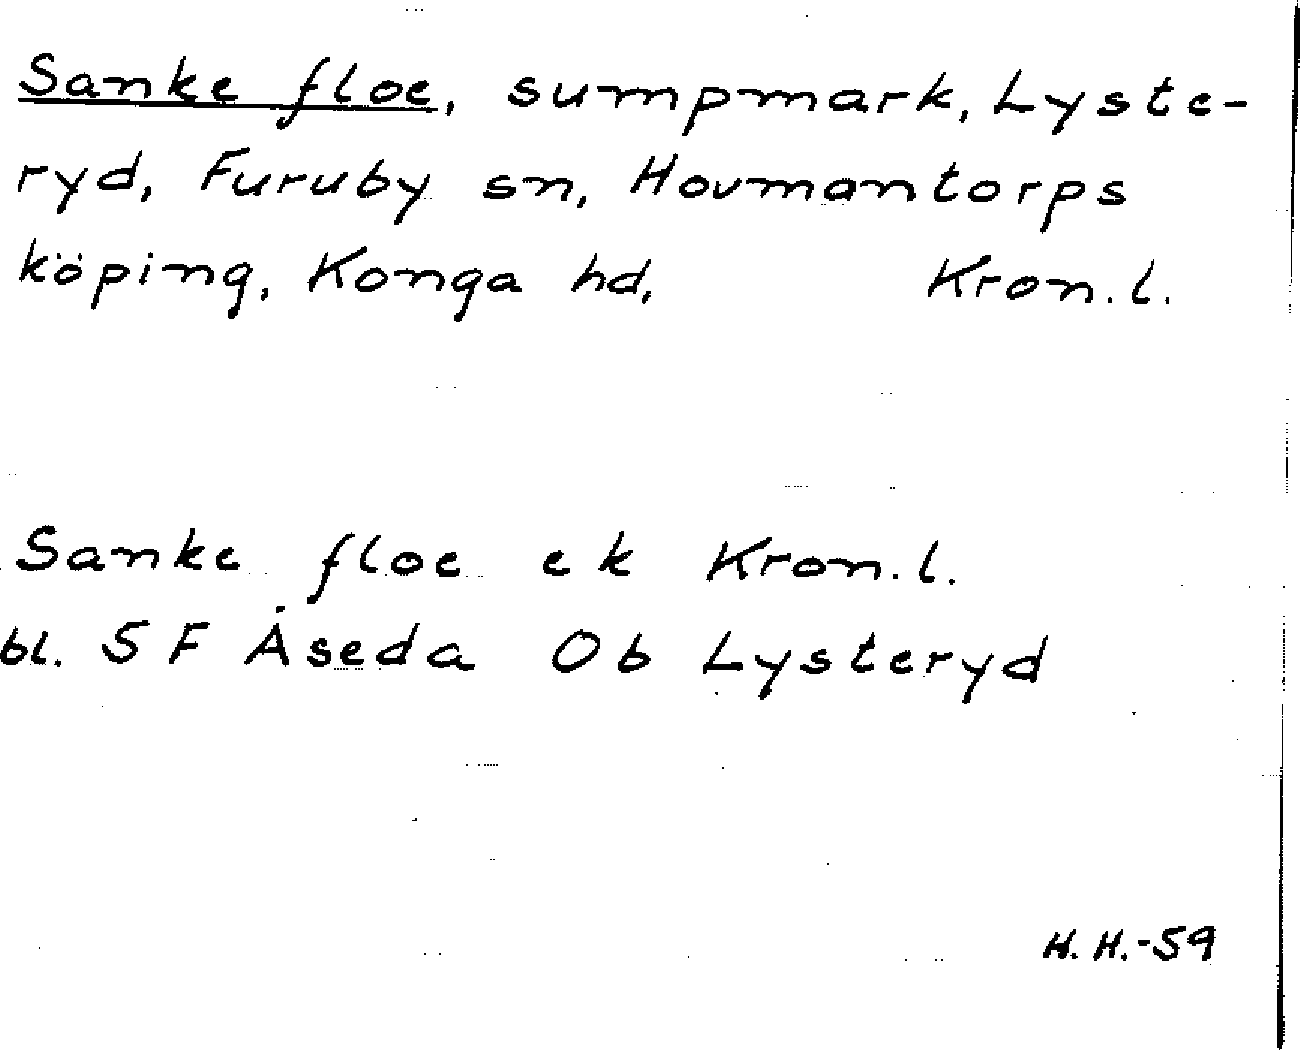 Sanke floe, sumpmark, Lyste-
ryd, Furuby sn, Hovmantorps
köping, Konga hd, Kron. l.
Sanke floe ek Kron. l.
bl. 5 F Åseda Ob Lysteryd
H. H.-59